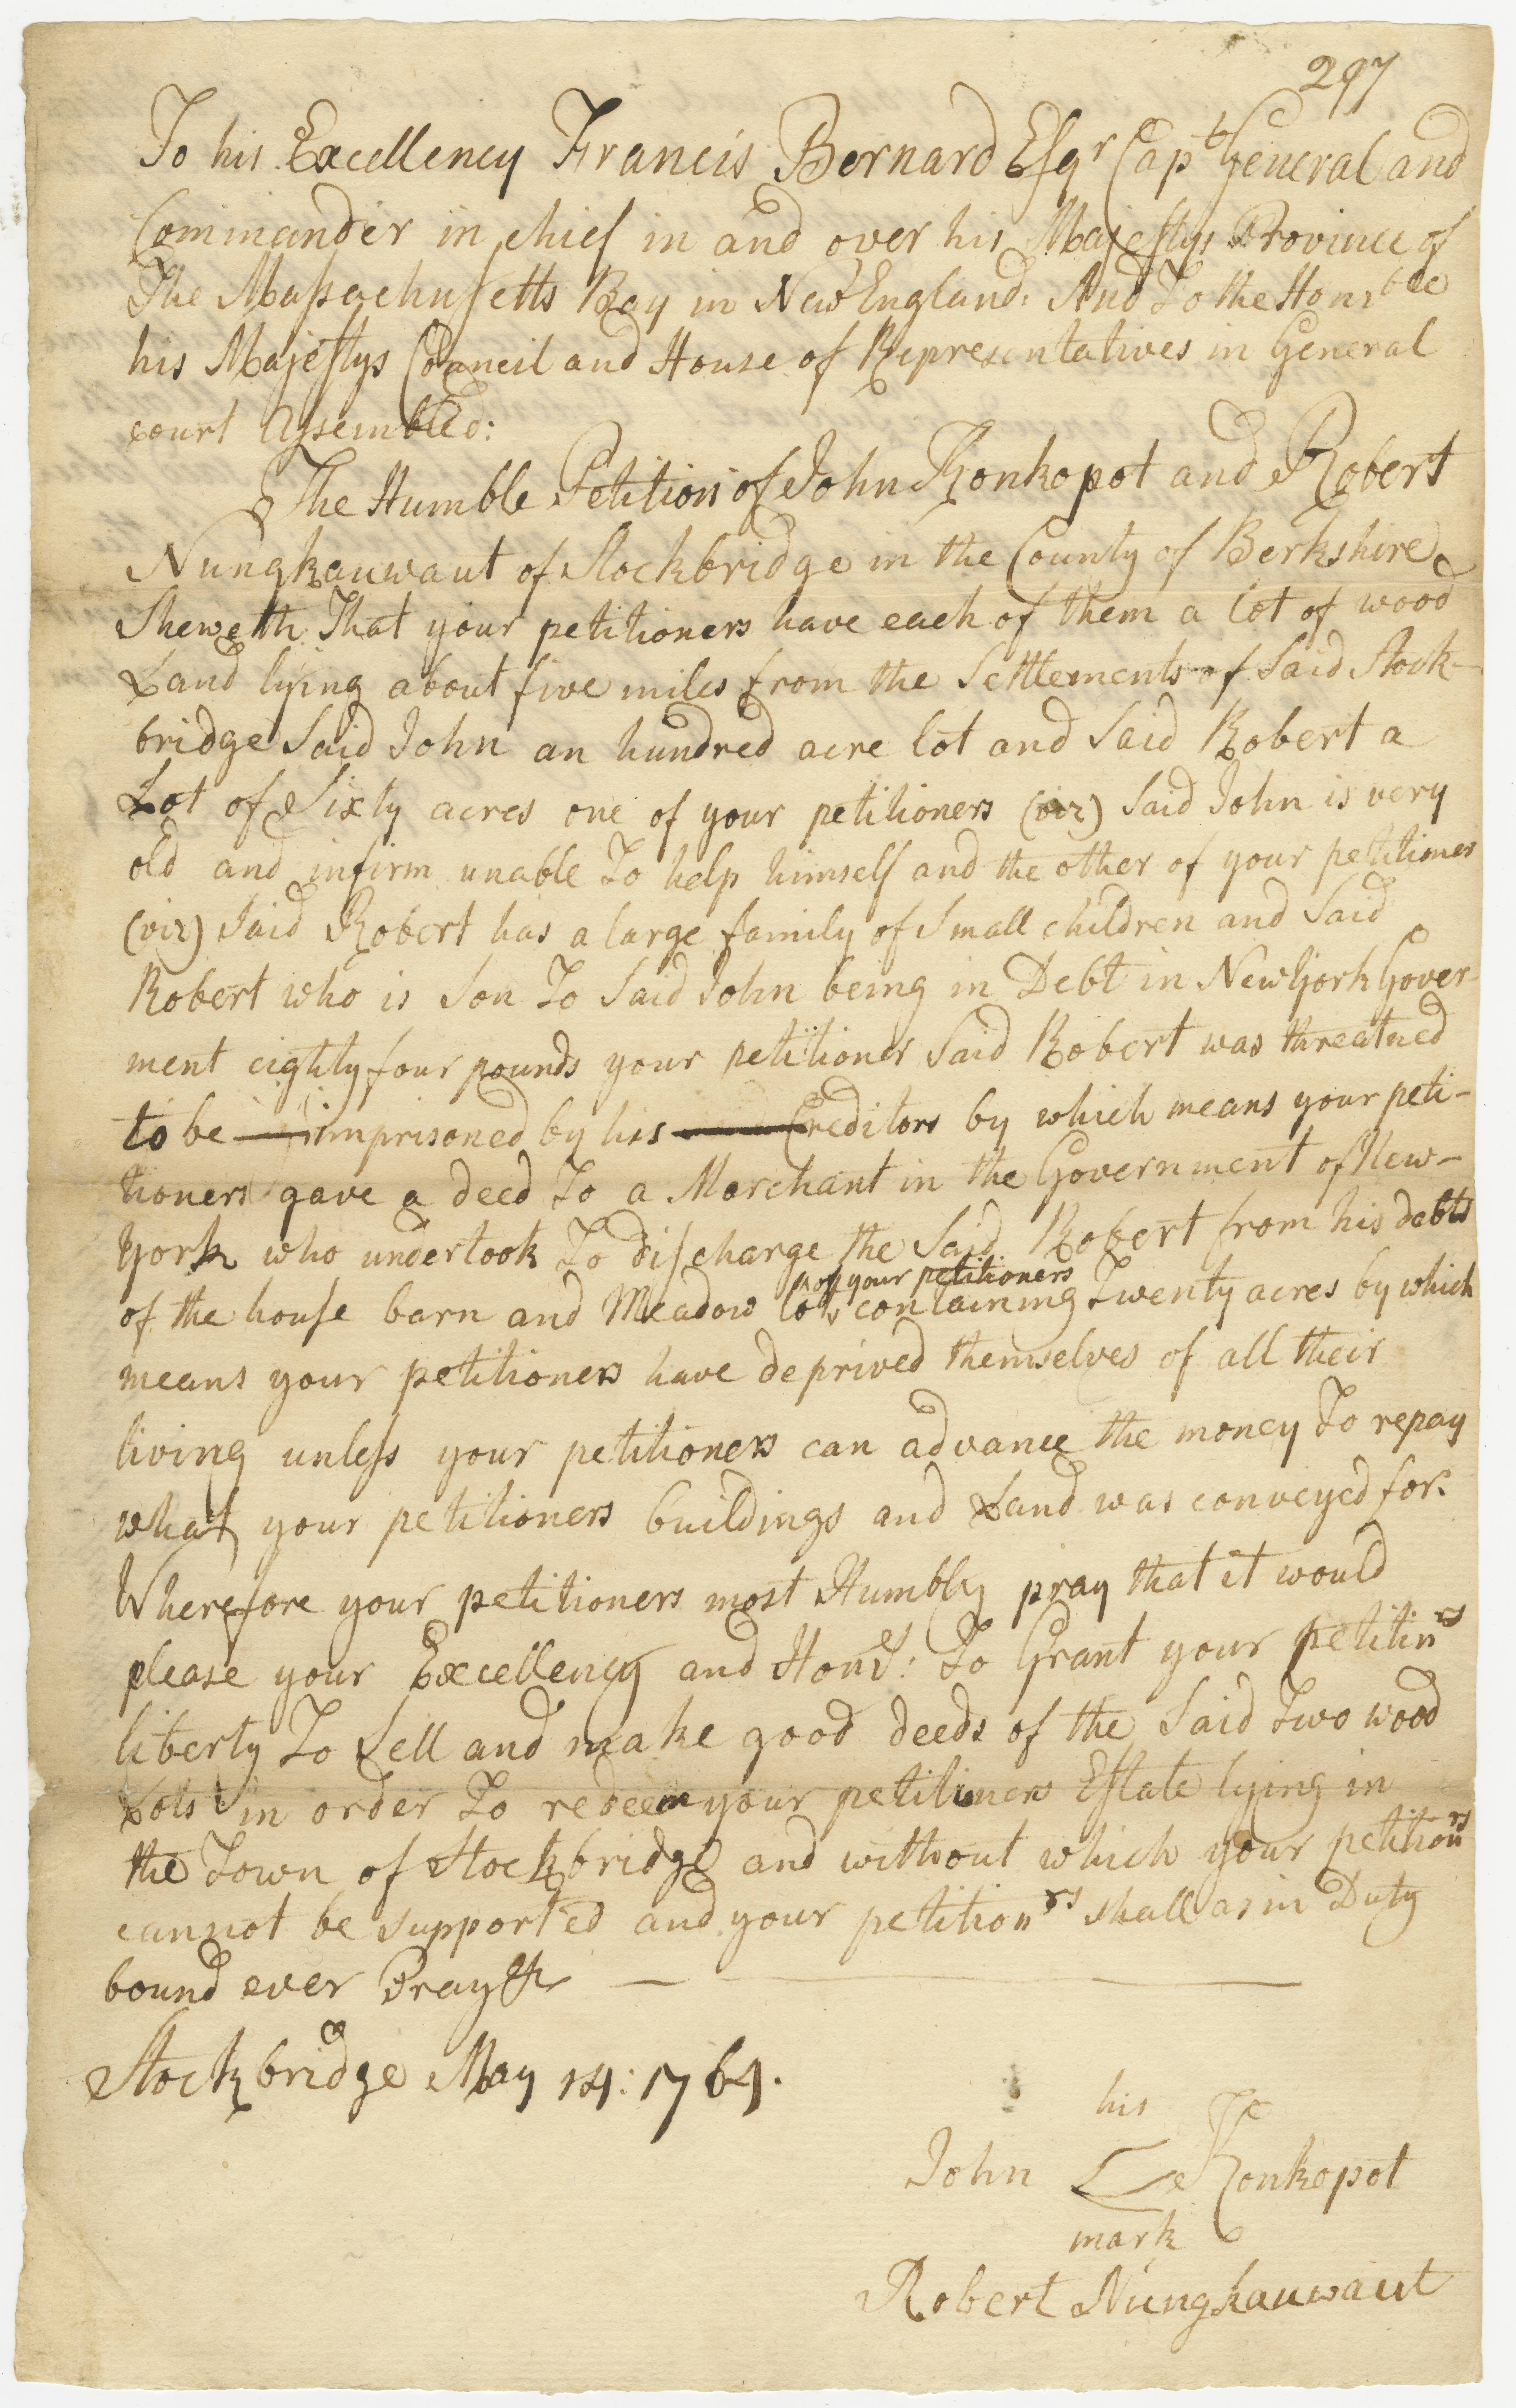 297
To his Excellency Francis Bernard Esqr Capt General and
Commander in chief in and over his Majestys Province of
The Massachusetts Bay in New England. And To the Honrble
his Majestys Council and House of Representatives in General
court Assembled:
The Humble Petition of John Konkopot and Robert
Nungkauwaut of Stockbridge in the County of Berkshire
Sheweth That your petitioners have each of them a lot of wood
Land lying about five miles from the Settlements of Said Stock-
bridge Said John an hundred acre lot and Said Robert a
Lot of Sixty acres one of your petitioners (viz) Said John is very
old and infirm unable To help himself and the other of your petitioner
(viz) Said Robert has a large family of Small children and Said
Robert who is Son To Said John being in Debt in New York Gover-
ment eighty four pounds your petitioner Said Robert was threatned
to be imprisoned by his Creditors by which means your peti-
tioners gave a deed To a Merchant in the Government of New-
York who undertook To discharge the Said Robert from his debts
of your petitioners
of the house barn and Meadow lot containing Twenty acres by which
means your petitioners have deprived themselves of all their
living unless your petitioners can advance the money To repay
what your petitioners buildings and Land was conveyed for.
Wherefore your petitioners most Humbly pray that it would
please your Excellency and Hons: To Grant your petitinrs
liberty To Sell and make good deeds of the Said Two wood
Lots in order To redeem your petitiners Estate lying in
the Town of Stockbridge and without which your petitionrs
cannot be supported and your petitionrs shall as in Duty
bound ever Pray &c
Stockbridge May 14: 1764.
his
John Konkopot
mark
Robert Nungkauwaut